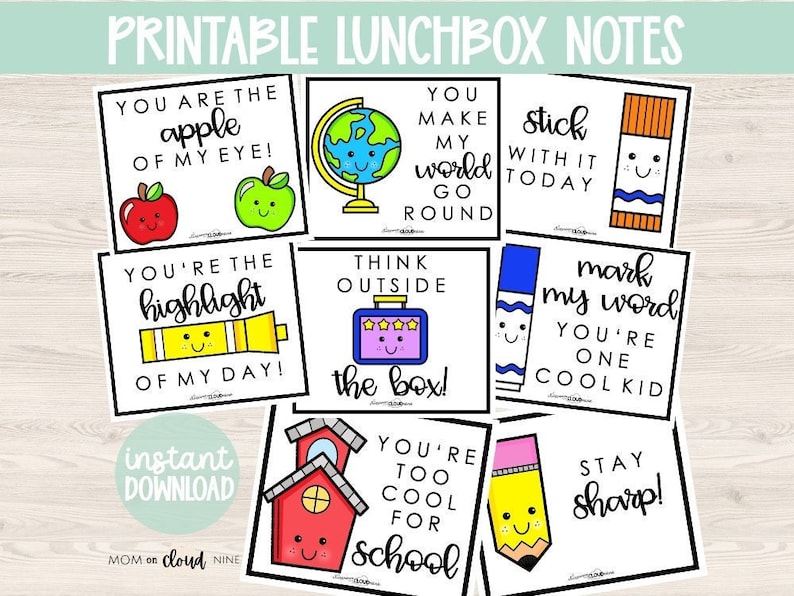 PRINTABLE LUNCHBOX NOTES
YOU ARE THE
apple
OF MY EYE!
YOU
MAKE
MY
world
GO
ROUND
stick
WITH IT
TODAY
YOU'RE THE
highlight
OF MY DAY!
THINK
OUTSIDE
the box!
mark
my word
YOU'RE
ONE
COOL KID
YOU'RE
TOO
COOL
FOR
school
STAY
sharp!
instant
DOWNLOAD
MOM on cloud NINE